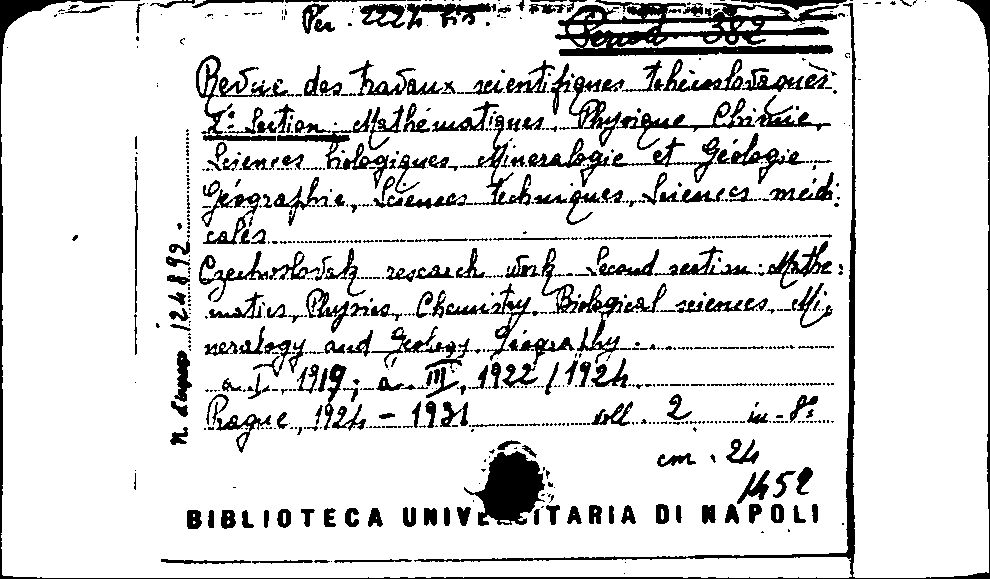 Per. 2224 bis.
Period. 382
Revue des travaux scientifiques tchécoslovaques.
2e Section: Mathématiques, Physique, Chimie,
Sciences biologiques, Mineralogie et Géologie,
Géographie, Sciences techniques, Sciences médi-
cales.
Czechoslovak research work. Second section: Mathe-
matics, Physics, Chemistry, Biological sciences, Mi-
neralogy and Geology, Geography...
a. I, 1919; a. III, 1922/1924.
Prague, 1924-1931 voll. 2 in-8°
cm. 24
1452
N. d'ingresso 124892.
BIBLIOTECA UNIVERSITARIA DI NAPOLI